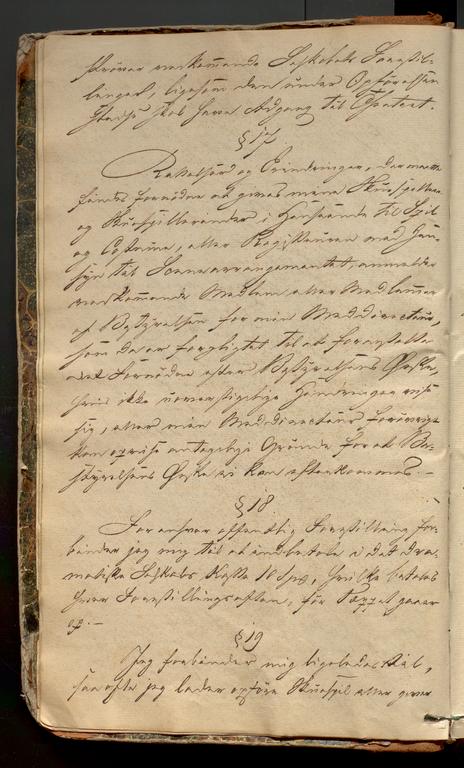 prøver vedkommende Selskabets Forestil-
linger, ligesom den under Opførelsen
stedse skal have Adgang til Theatret.
§ 17
Rettelser og Erindringer, der maatte
findes fornødne at gives mine Skuespillere
og Skuespillerinder, i Henseende til Spil
og Costume, eller Regisseuren med Hen-
syn til Scenearrangementet, anmelder
vedkommende Medlem eller Medlemmer
af Bestyrelsen for min Meddirecteur,
som da er forpligtet til at foranstalte
det fornødne efter Bestyrelsens Ønske,
hvis ikke uoverstigelige Hindringer vise
sig, eller min Meddirecteur forøvrigt
kan opvise antagelige Grunde for at Be-
styrelsens Ønske ei kan efterkommes. -
§ 18
For enhver offentlig Forestilling for-
binder jeg mig til at indbetale i det dra-
matiske Selskabs Kasse 10 Spd, hvilke betales
hver Forestillingsaften, før Tæppet gaaer
op. -
§ 19
Jeg forbinder mig ligeledes til,
saa ofte jeg lader opføre Skuespil eller giver